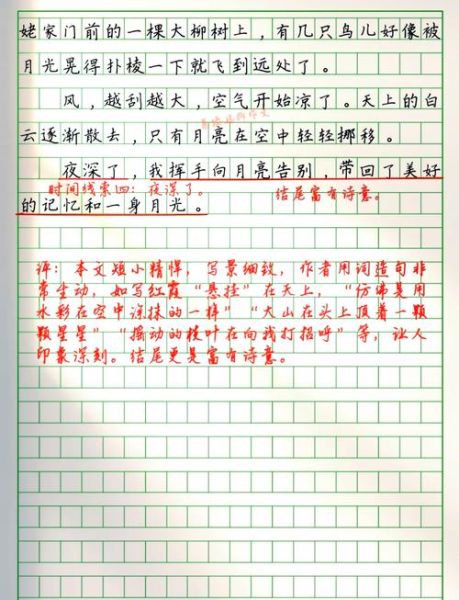 姥家门前的一棵大柳树上，有几只鸟儿好像被
月光晃得扑棱一下就飞到远处了。
风，越刮越大，空气开始凉了。天上的白
云逐渐散去，只有月亮在空中轻轻挪移。
夜深了，我挥手向月亮告别，带回了美好
时间线索四：夜深了。 结尾富有诗意。
的记忆和一身月光。
评：本文短小精悍，写景细致，作者用词造句非
常生动，如写红霞“悬挂”在天上，“仿佛是用
水彩在空中涂抹的一样”“大山在头上顶着一颗
颗星星”“摇动的枝叶在向我打招呼”等，让人
印象深刻。结尾更是富有诗意。